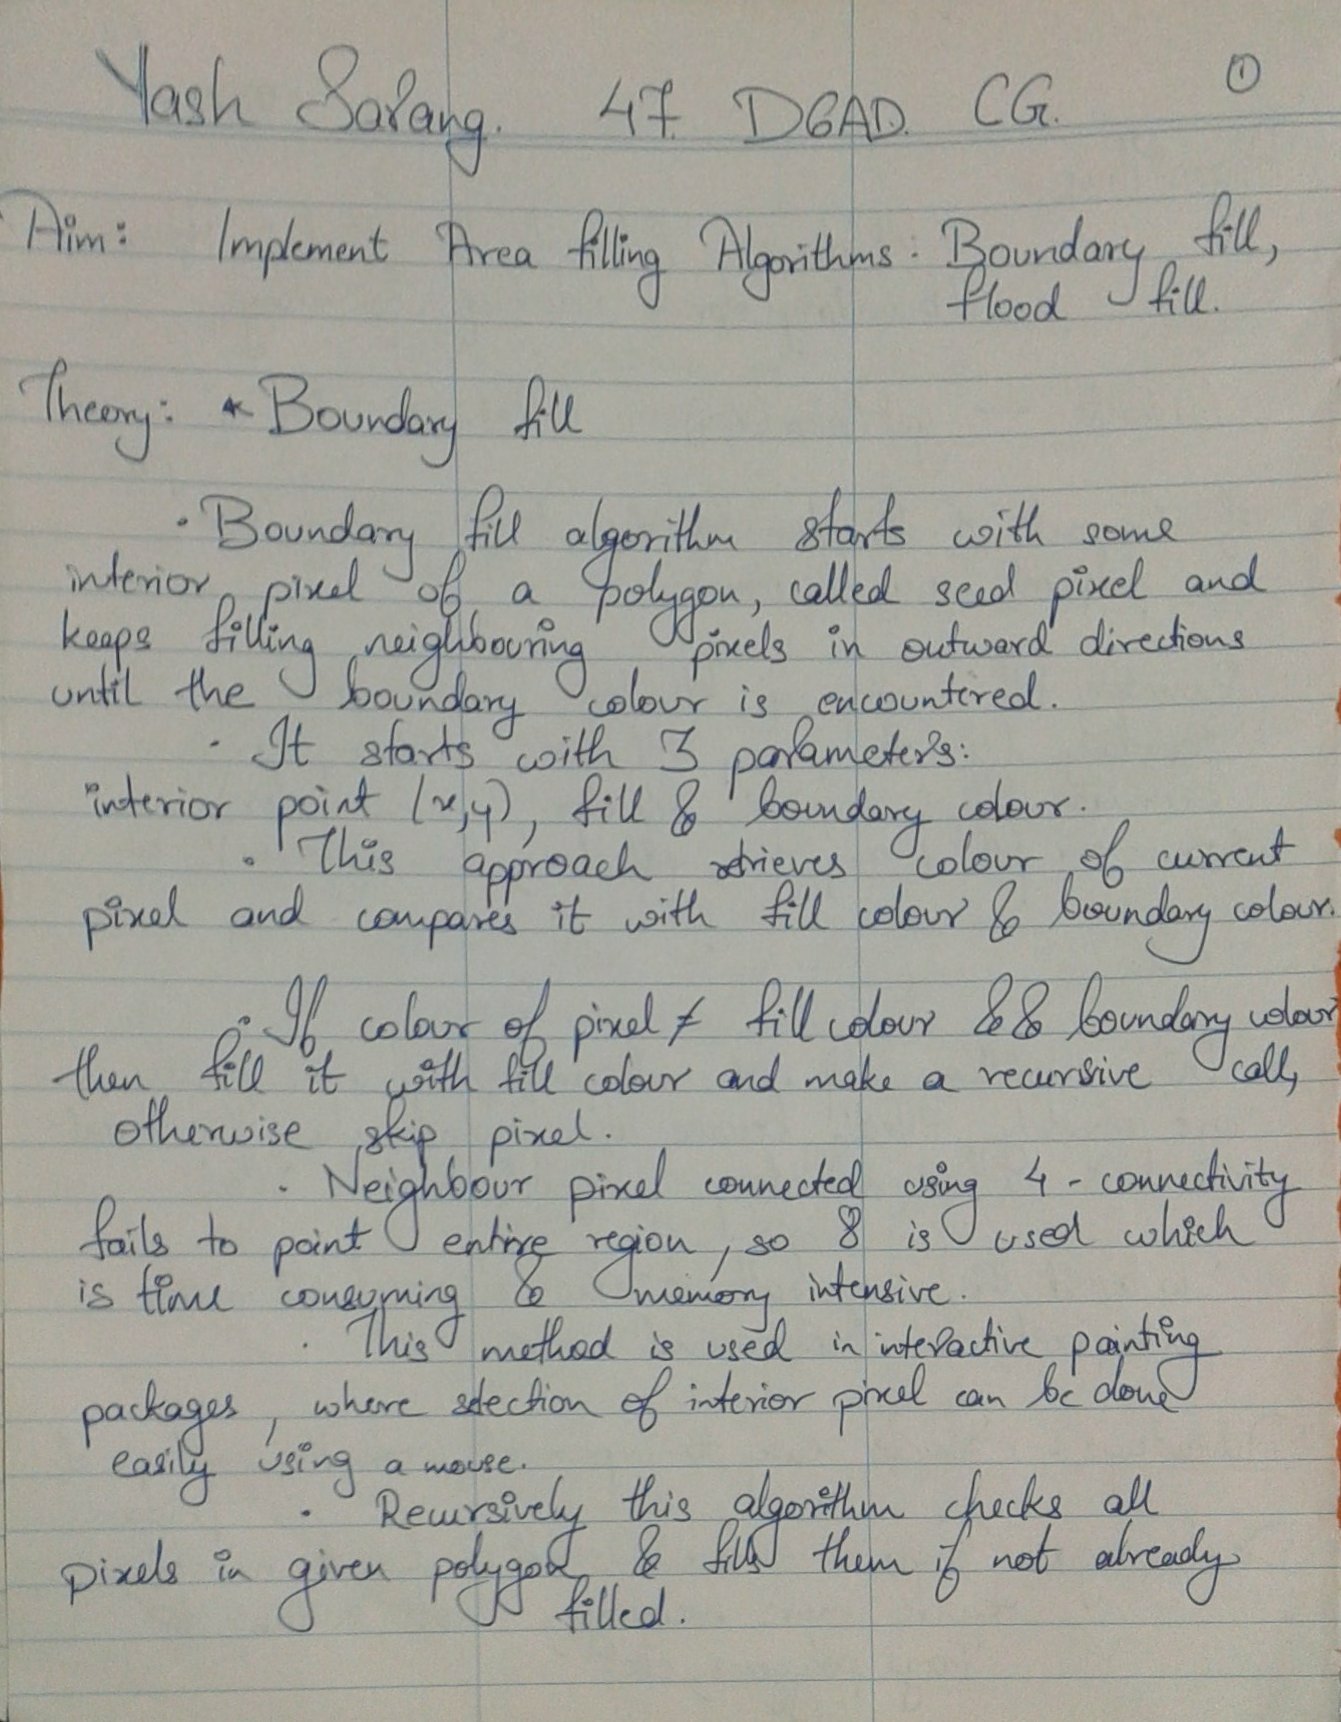 Yash Sarang. 47. D6AD. CG. 1
Aim: Implement Area filling Algorithms: Boundary fill,
flood fill.
Theory: * Boundary fill
· Boundary fill algorithm starts with some
interior pixel of a polygon, called seed pixel and
keeps filling neighbouring pixels in outward directions
until the boundary colour is encountered.
· It starts with 3 parameters:
interior point (x,y), fill & boundary colour.
· This approach retrieves colour of current
pixel and compares it with fill colour & boundary colour.
· If colour of pixel ≠ fill colour && boundary colour
then fill it with fill colour and make a recursive call,
otherwise skip pixel.
· Neighbour pixel connected using 4 - connectivity
fails to paint entire region, so 8 is used which
is time consuming & memory intensive.
· This method is used in interactive painting
packages, where selection of interior pixel can be done
easily using a mouse.
· Recursively this algorithm checks all
pixels in given polygon & fills them if not already
filled.